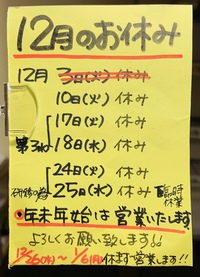 12月のお休み
12月 3日(火) 休み
10日(火) 休み
17日(火) 休み
第3週 18日(水) 休み
24日(火) 休み
研修の為 25日(水) 休み 臨時休業
年末年始は営業いたします
よろしくお願い致します!!
12/26(木)〜1/6(月)休まず営業します!!